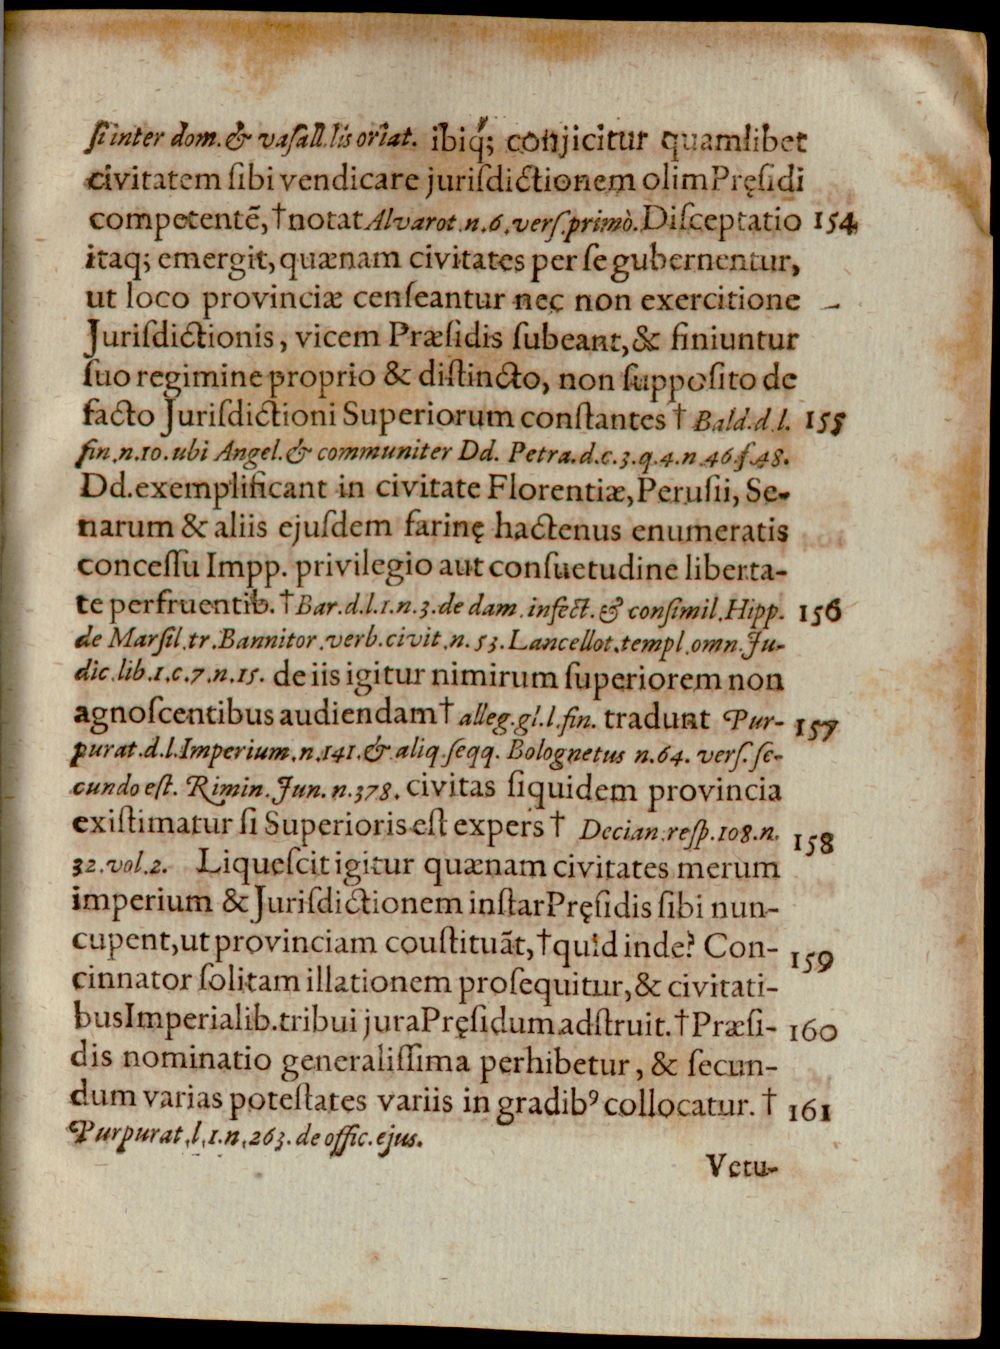 ſi inter dom. & vaſall. lis oriat. ibiq́; conjicitur quamlibet
civitatem ſibi vendicare jurisdictionem olim Pręſidi
competentē, † notat Alvarot. n. 6. verſ. primò. Diſceptatio 154
itaq; emergit, quænam civitates per ſe gubernentur,
ut loco provinciæ cenſeantur nec non exercitione
Jurisdictionis, vicem Præſidis ſubeant, & finiuntur
ſuo regimine proprio & diſtincto, non ſuppoſito de
facto Jurisdictioni Superiorum conſtantes † Bald. d. l. 155
fin. n. 10. ubi Angel. & communiter Dd. Petra. d. c. 3. q. 4. n. 46. ſ. 48.
Dd. exemplificant in civitate Florentiæ, Peruſii, Se-
narum & aliis ejuſdem farinę hactenus enumeratis
conceſſu Impp. privilegio aut conſuetudine liberta-
te perfruentib. † Bar. d. l. 1. n. 3. de dam. infect. & conſimil. Hipp. 156
de Marſil. tr. Bannitor. verb. civit. n. 53. Lancellot. templ. omn. Ju-
dic. lib. 1. c. 7. n. 15. de iis igitur nimirum ſuperiorem non
agnoſcentibus audiendam † alleg. gl. l. fin. tradunt Pur- 157
purat. d. l. Imperium. n. 141. & aliq. ſeqq. Bolognetus n. 64. verſ. ſe-
cundo eſt. Rimin. Jun. n. 378. civitas ſiquidem provincia
exiſtimatur ſi Superioris eſt expers † Decian. reſp. 108. n. 158
32. vol. 2. Liqueſcit igitur quænam civitates merum
imperium & Jurisdictionem inſtar Pręſidis ſibi nun-
cupent, ut provinciam couſtituãt, † quid inde? Con- 159
cinnator ſolitam illationem proſequitur, & civitati-
bus Imperialib. tribui jura Pręſidum adſtruit. † Præſi- 160
dis nominatio generaliſſima perhibetur, & ſecun-
dum varias poteſtates variis in gradibꝰ collocatur. † 161
Purpurat. l. 1. n. 263. de offic. ejus.
Vetu-